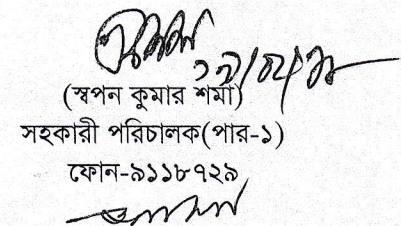 (স্বপন কুমার শর্মা)
সহকারী পরিচালক(পার-১)
ফোন-৯১১৮৭২৯